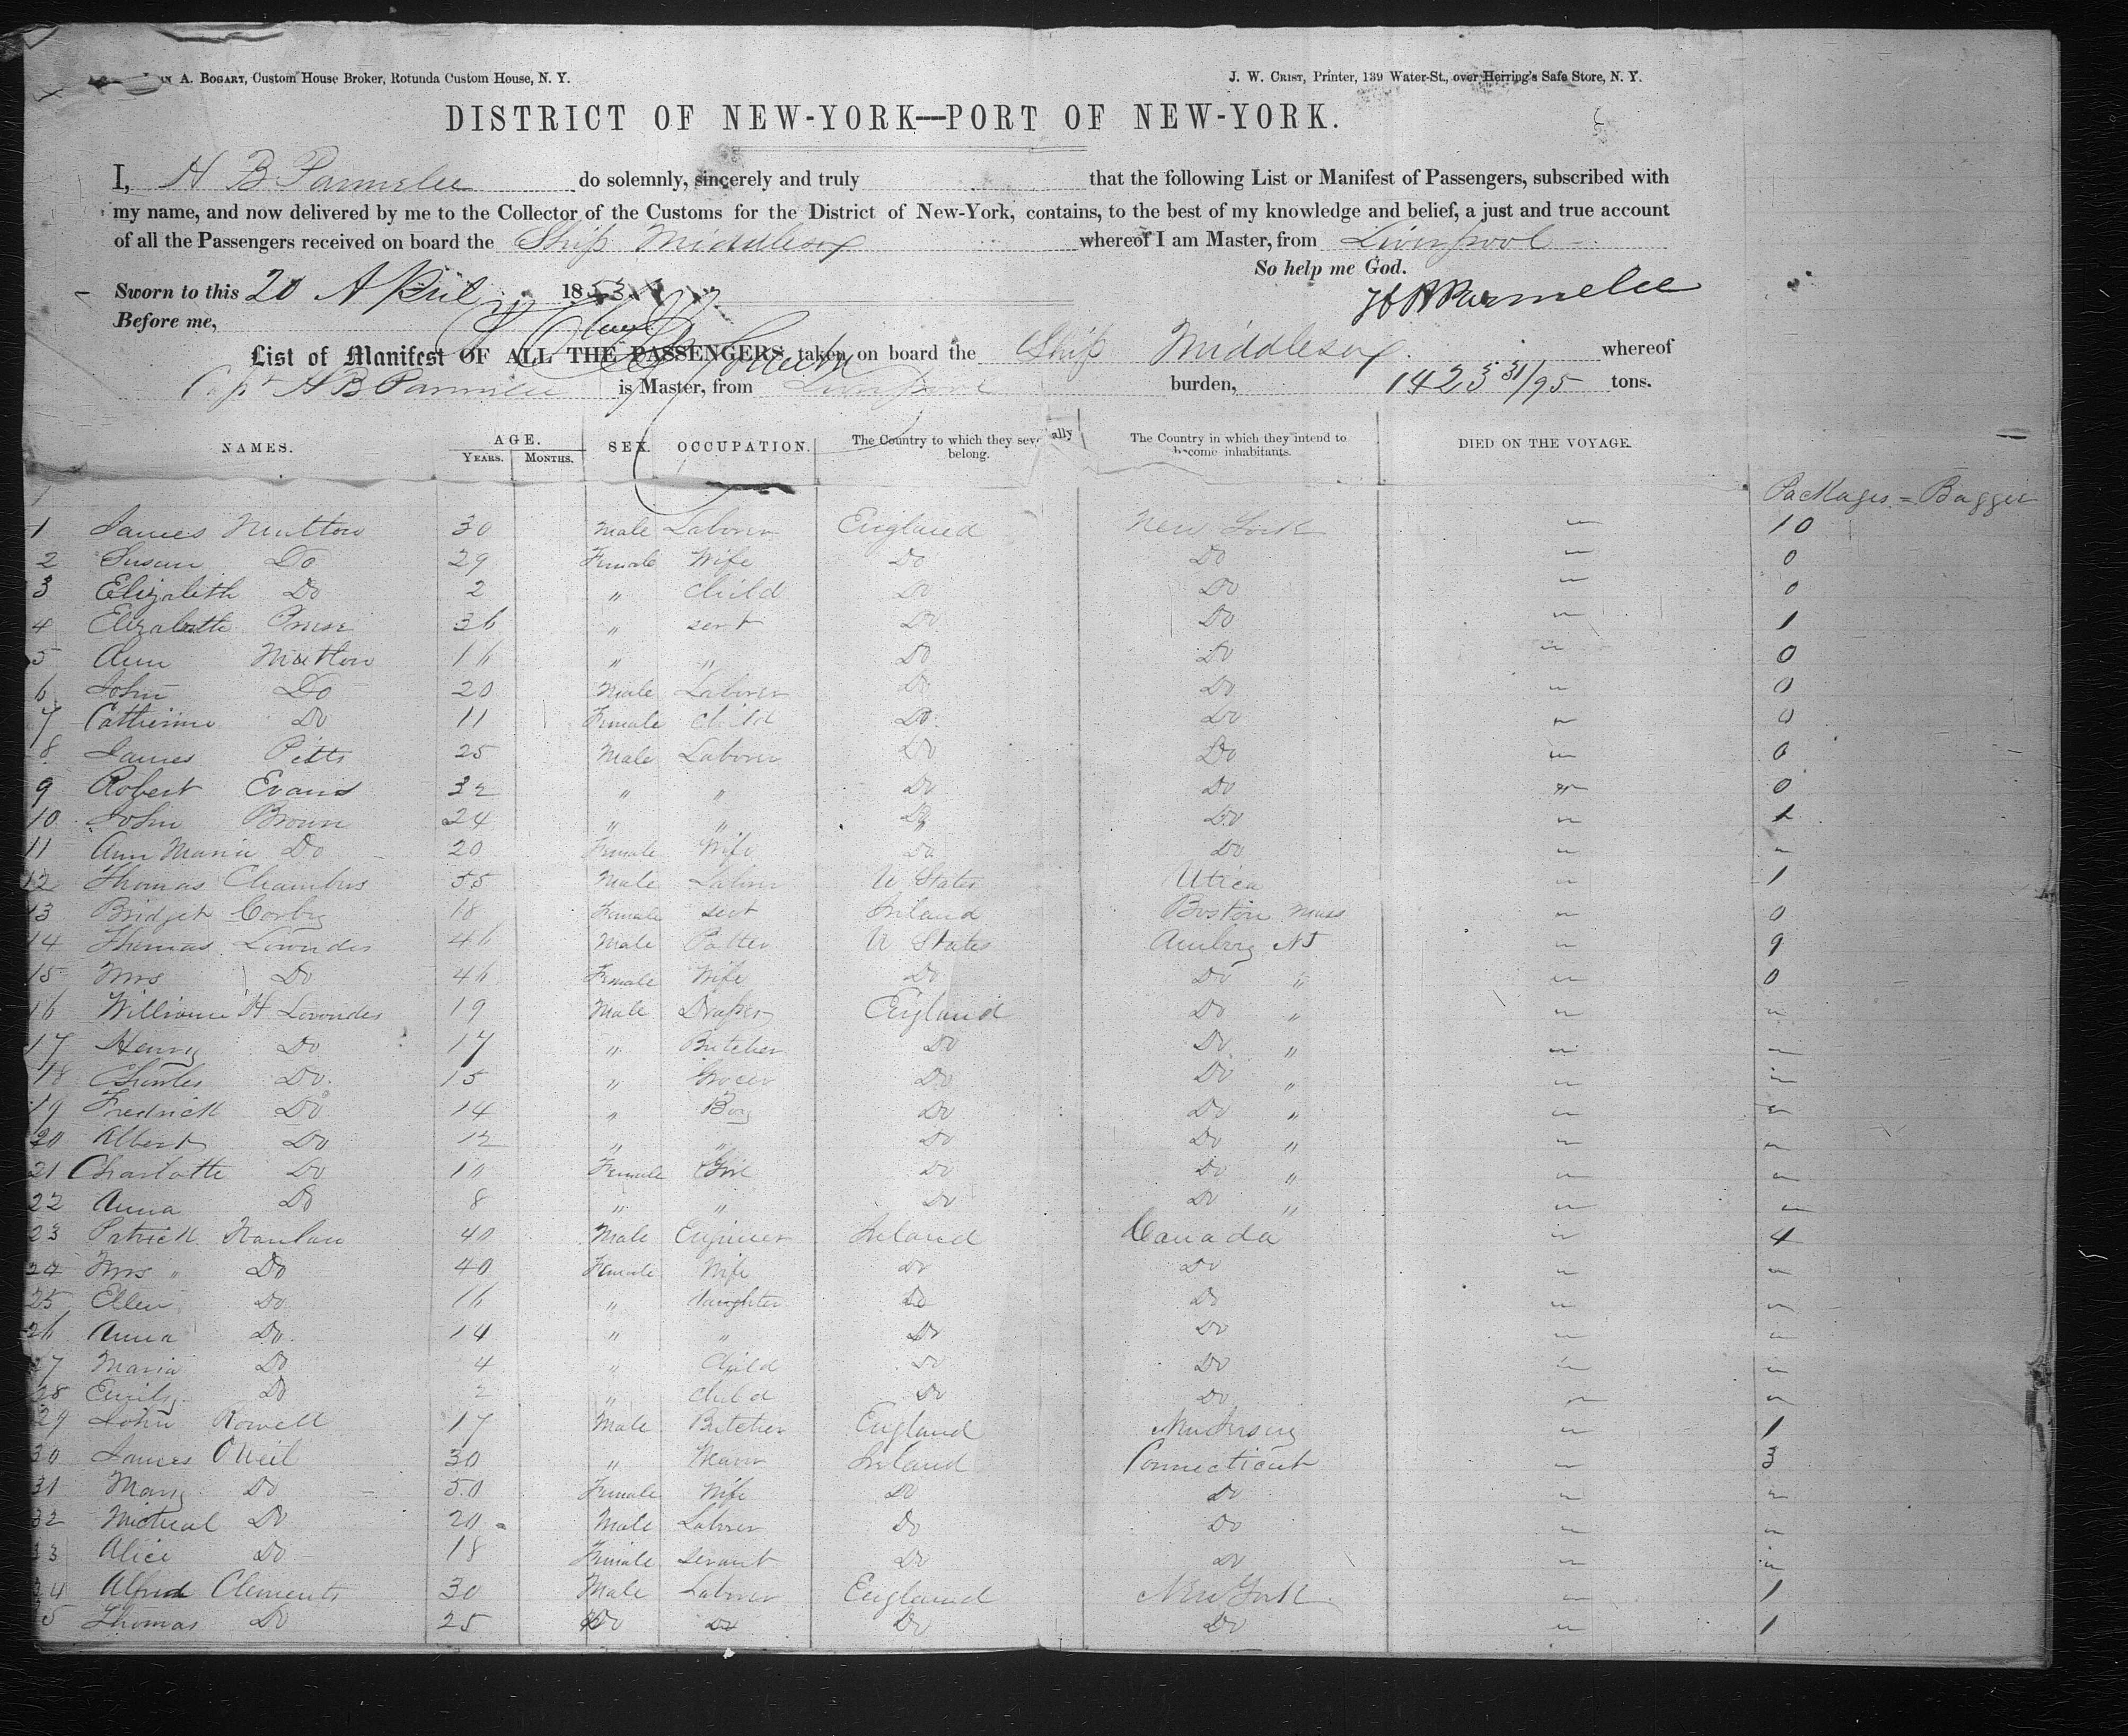 A. BOGART, Custom House Broker, Rotunda Custom House, N. Y. J. W. CRIST, Printer, 139 Water-St., over Herring's Safe Store, N. Y.
DISTRICT OF NEW-YORK—PORT OF NEW-YORK.
I, H B Parmelee do solemnly, sincerely and truly that the following List or Manifest of Passengers, subscribed with
my name, and now delivered by me to the Collector of the Customs for the District of New-York, contains, to the best of my knowledge and belief, a just and true account
of all the Passengers received on board the Ship Middlesex whereof I am Master, from Liverpool
So help me God.
Sworn to this 20 April 1853 H B Parmelee
Before me,
List of Manifest OF ALL THE PASSENGERS taken on board the Ship Middlesex whereof
Capt H B Parmelee is Master, from Liverpool burden, 1423 31/95 tons.
NAMES. AGE. YEARS. MONTHS. SEX. OCCUPATION. The Country to which they severally belong. The Country in which they intend to become inhabitants. DIED ON THE VOYAGE.
Packages = Bagge
1 James Mutton 30 Male Laborer England New York 10
2 Susan Do 29 Female Wife Do Do 0
3 Elizabeth Do 2 " Child Do Do 0
4 Elizabeth 36 " sert Do Do 1
5 Ann Mutton 16 " " Do Do 0
6 John Do 20 Male Laborer Do Do 0
7 Catherine Do 11 Female Child Do Do 0
8 James Pitts 25 Male Laborer Do Do 0
9 Robert Evans 32 " " Do Do 0
10 John Brown 24 " " Do Do 1
11 Ann Maria Do 20 Female Wife Do Do "
12 Thomas Chambers 55 Male Laborer U States Utica 1
13 Bridget Corby 18 Female sert Ireland Boston Mass 0
14 Thomas Lowndes 46 Male Potter U States Amboy NJ 9
15 Mrs Do 46 Female Wife Do Do " 0
16 William H Lowndes 19 Male Draper England Do " "
17 Henry Do 17 " Butcher Do Do " "
18 Charles Do 15 " Grocer Do Do " "
19 Fredrick Do 14 " Boy Do Do " "
20 Albert Do 12 " " Do Do " "
21 Charlotte Do 10 Female Girl Do Do " "
22 Anna Do 8 " " Do Do " "
23 Patrick Hanlan 40 Male Engineer Ireland Canada 4
24 Mrs " Do 40 Female Wife Do Do "
25 Ellen Do 16 " daughter Do Do "
26 Anna Do 14 " " Do Do "
27 Maria Do 4 " Child Do Do "
28 Emily Do 2 " child Do Do "
29 John Rowell 17 Male Butcher England New Jersey 1
30 James O Neil 30 " Ireland Connecticut 3
31 Mary Do 50 Female Wife Do Do "
32 Micheal Do 20 Male Laborer Do Do "
33 Alice Do 18 Female servant Do Do "
34 Alfred Clements 30 Male Laborer England New York 1
5 Thomas Do 25 Do Do Do Do 1